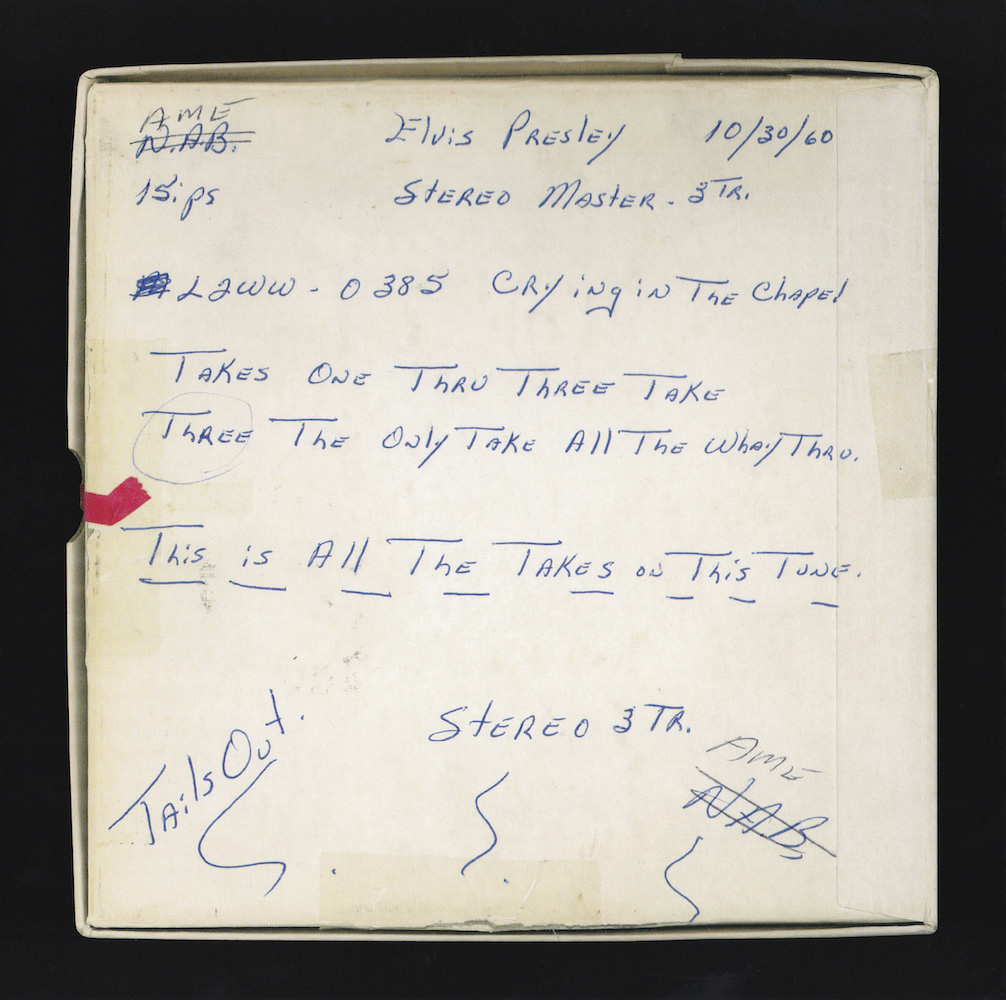 AME
N.A.B.
Elvis Presley 10/30/60
15ips Stereo Master - 3 TR.
L2WW - 0385 Crying in The Chapel
Takes One Thru Three Take
Three The Only Take All The Whay Thru.
This is All The Takes on This Tune.
Tails Out.
Stereo 3 TR.
AME
NAB